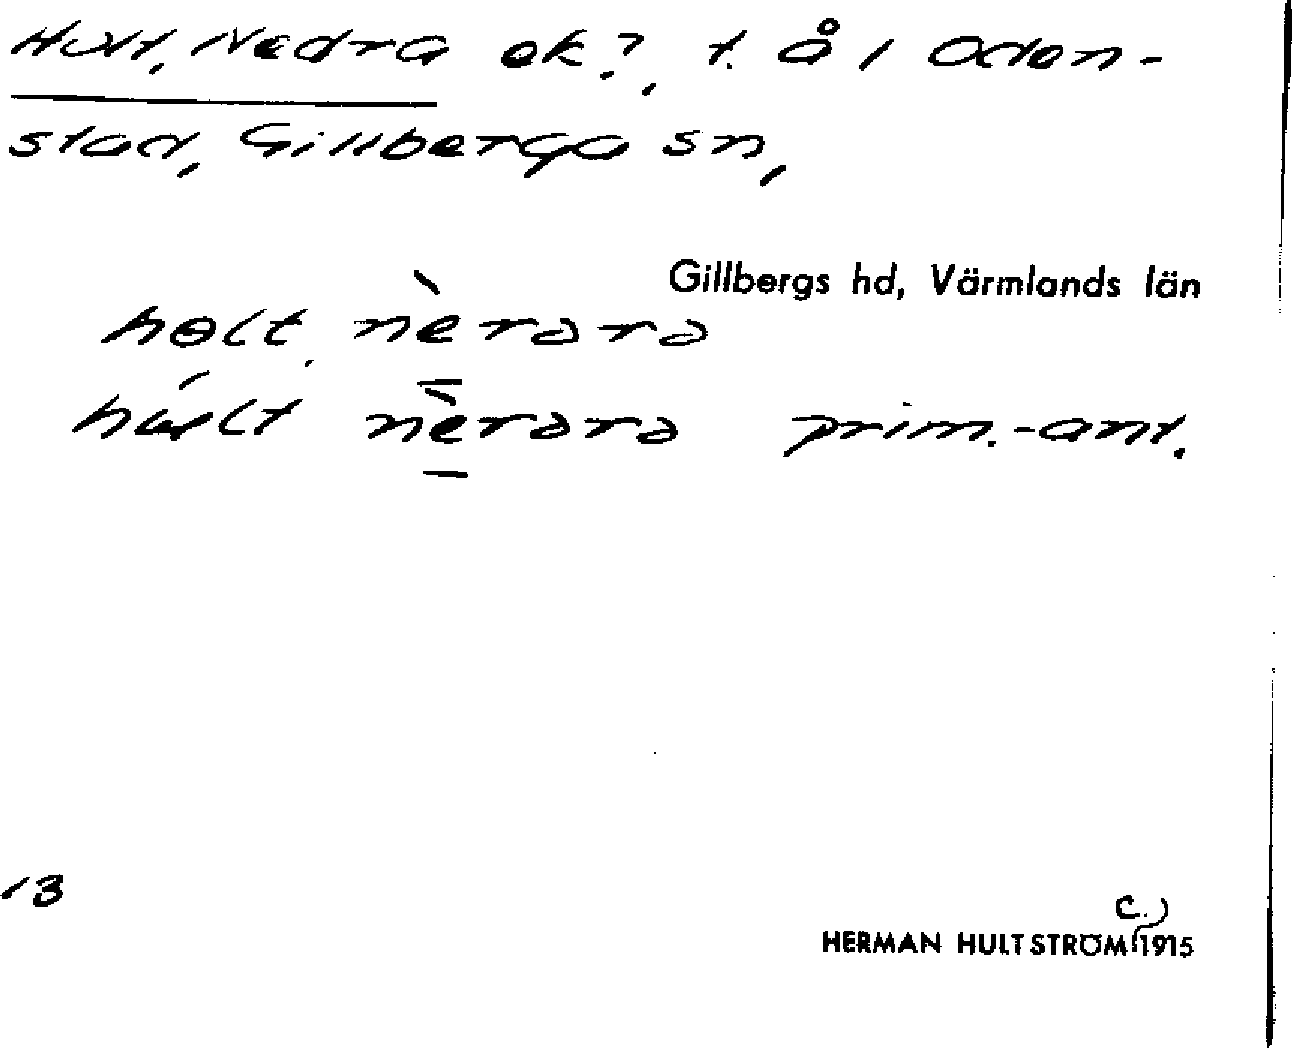 Hult, Nedra ek?, t. å i Oden-
stad, Gillberga sn,
Gillbergs hd, Värmlands län
hɵlt nèrara
nèrara prim.-ant.
13
C.
HERMAN HULTSTRÖM 1915